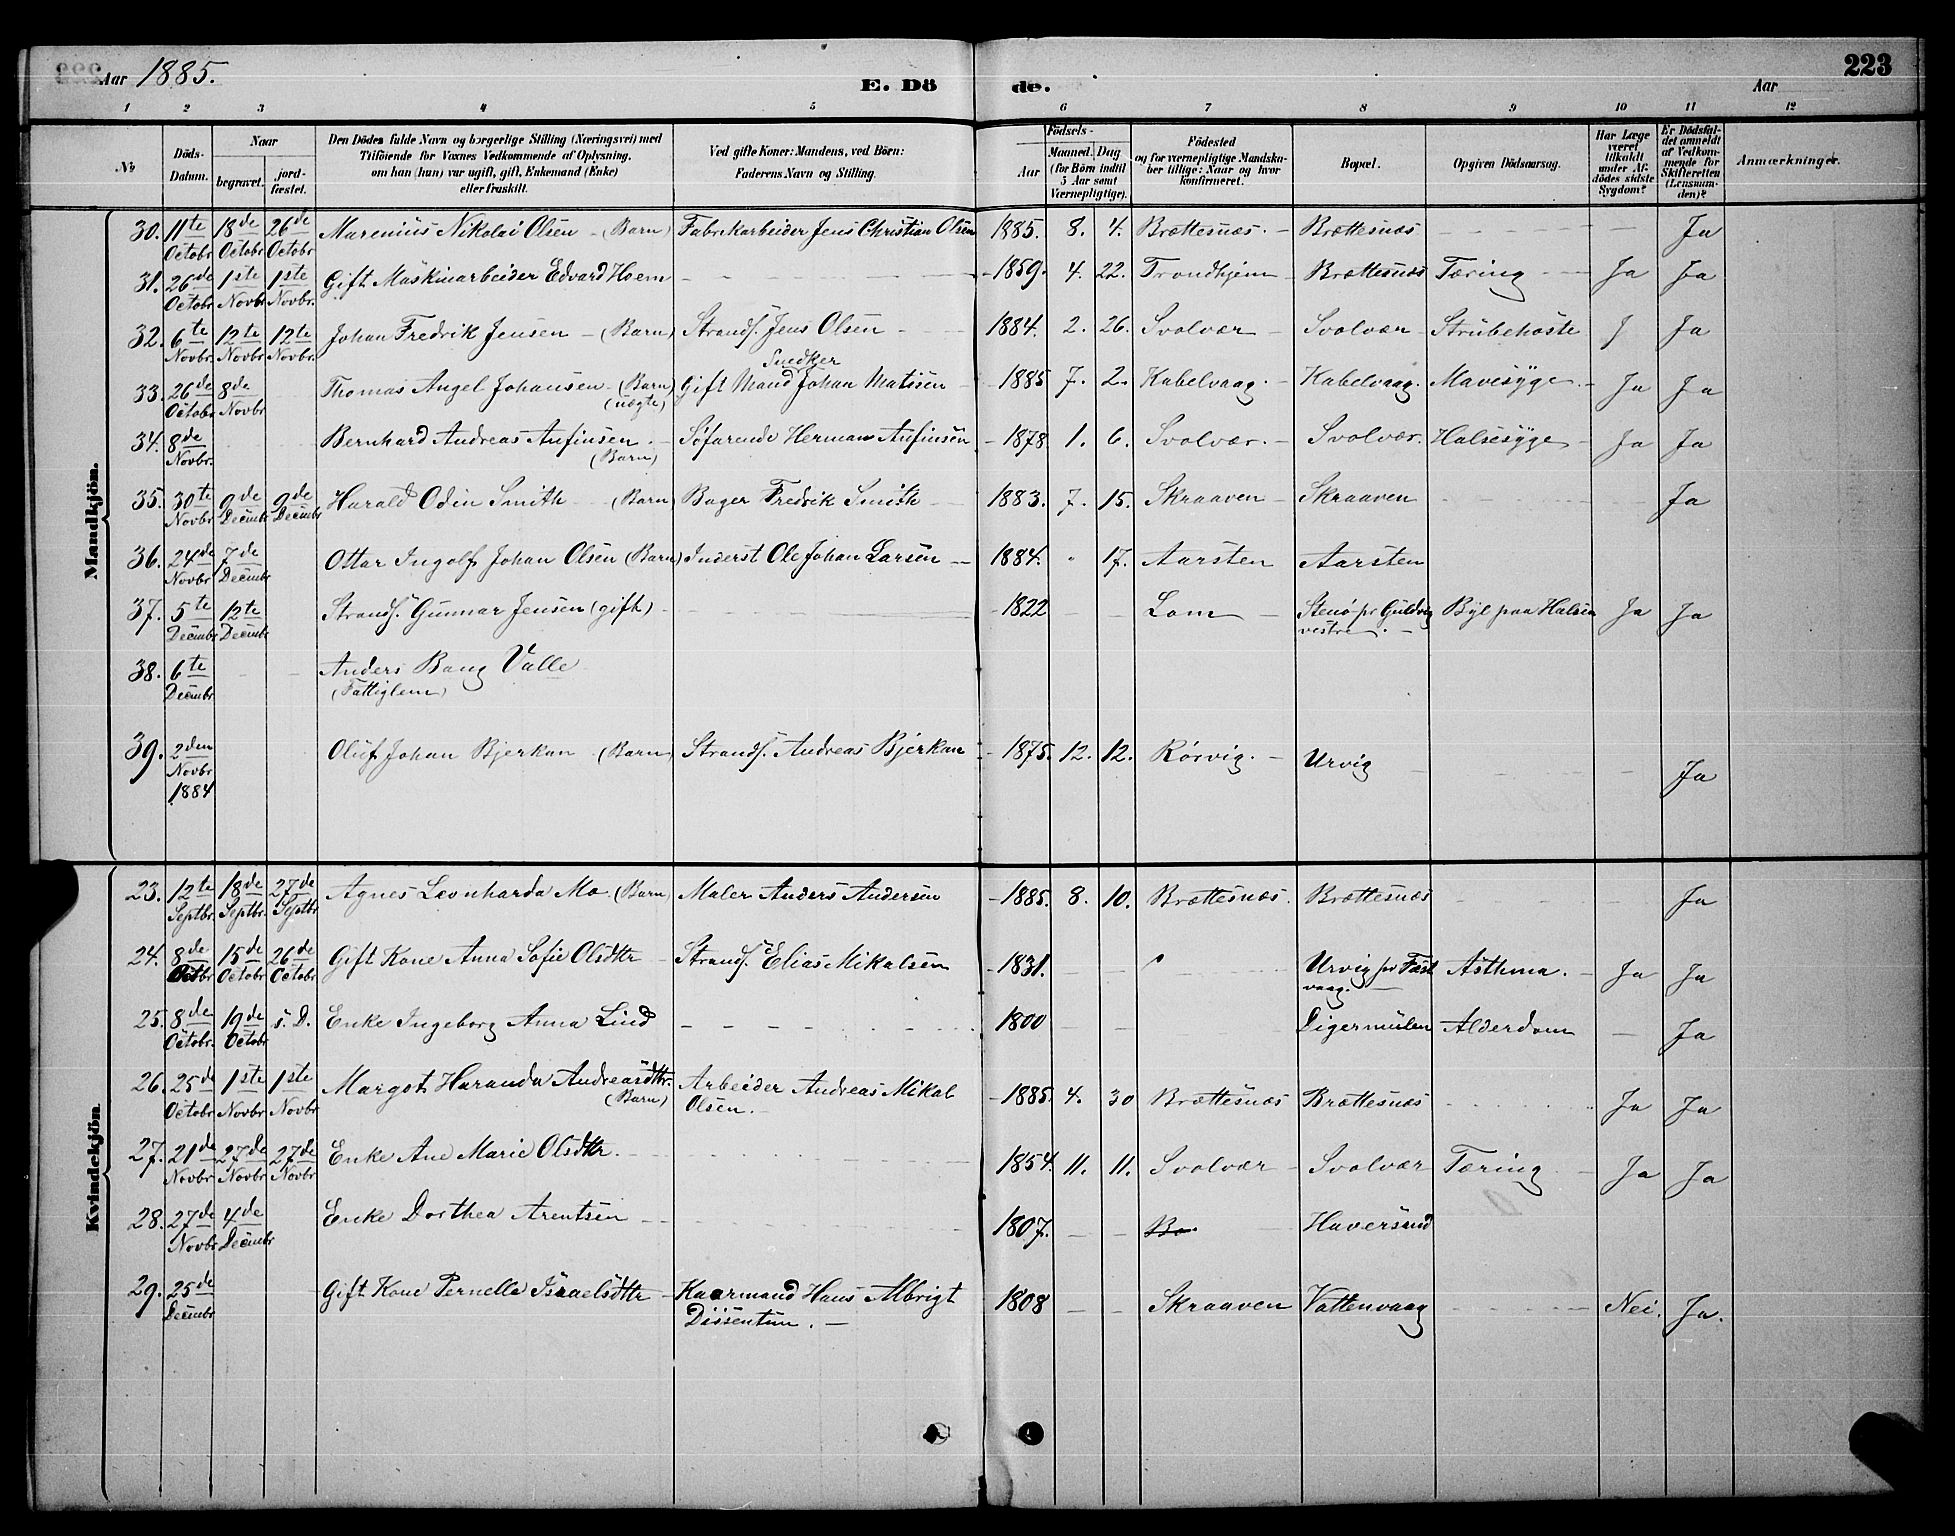 Aar 1885.
E. Dö
de.
Aar
223
1 2 3 4 5 6 7 8 9 10 11 12
No
Döds-Datum.
Naar
begravet.
jord-fæstet.
Den Dödes fulde Navn og borgerlige Stilling (Næringsvei) med
Tilföiende for Voxnes Vedkommende af Oplysning,
om han (hun) var ugift, gift, Enkemand (Enke)
eller fraskilt.
Ved gifte Koner: Mandens, ved Börn:
Faderens Navn og Stilling.
Födsels-
Aar
Maaned. Dag
(for Börn indtil
5 Aar samt
Værnepligtige).
Födested
og for værnepligtige Mandska-
ber tillige: Naar og hvor
konfirmeret.
Bopæl.
Opgiven Dödsaarsag.
Har Læge
været
tilkaldt
under Af-
dödes sidste
Sygdom?
Er Dödsfal-
det anmeldt
af Vedkom-
mende for
Skifteretten
(Lensman-
den)?
Anmærkninger.
Mandkjön.
30. 11te Octobr 18de Octobr 26de Octobr Marenius Nikolai Olsen - (Barn) Fabrikarbeider Jens Christian Olsen 1885. 8. 4. Brættesnæs. - Brættesnæs Ja
31. 26de Octobr 1ste Novbr 1ste Novbr. Gift Maskinarbeider Edvard Hoem - 1859. 4. 22. Trondhjem - Brættesnæs Tæring Ja Ja
32. 6te Novbr. 12te Novbr 12te Novbr. Johan Fredrik Jensen - (Barn) Strands. Jens Olsen - 1884. 2. 26. Svolvær - Svolvær - Strubehoste J Ja
33. 26de Octobr 8de Novbr Thomas Angel Johansen - (Barn) (uægte) Gift Mand Snedker Johan Matisen - 1885 7. 2. Kabelvaag. - Kabelvaag. Mavesyge. - Ja Ja
34. 8de Novbr. Bernhard Andreas Anfinsen. - (Barn) Søfarende Herman Anfinsen - 1878 1. 6. Svolvær. - Svolvær. Halsesyge - Ja Ja
35. 30te Novbr 9de Decembr 9de Decembr Harald Odin Smith (Barn) Bager Fredrik Smith - 1883. 7. 15. Skraaven - Skraaven Ja
36. 24de Novbr 7de Decembr Ottar Ingolf Johan Olsen (Barn) Inderst Ole Johan Larsen - 1884. " 17. Aarsten Aarsten
37. 5te Decembr 12te Decembr Strands. Gunnar Jensen (gift) - 1822 Lom - Stenø pr Guldvig vestre. - Byl paa Halsen Ja Ja
38. 6te Decembr Anders Bang Valle
(Fattiglem)
39. 2den Novbr 1884 Oluf Johan Bjerkan - (Barn) Strands. Andreas Bjerkan - 1875. 12. 12. Rørvig. - Urvig Ja
Kvindekjön.
23. 12te Septbr. 18de Septbr. 27de Septbr Agnes Leonharda Mo - (Barn) Maler Anders Andersen - 1885. 8. 10. Brættesnæs. Brættesnæs Ja
24. 8de Octbr 15de Octobr 26de Octobr Gift Kone Anna Sofie Olsdtr - Strands. Elias Mikalsen - 1831. Urvig pr Fæst vaag. - Asthma. - Ja Ja
25. 8de Octobr. 19de Octobr s. D. Enke Ingeborg Anna Lind 1800 Digermulen Alderdom - Ja
26. 25de Octobr 1ste Novbr 1ste Novbr Margot Haranda Andreasdtr. (Barn) Arbeider Andreas Mikal Olsen. - 1885. 4. 30 Brættesnæs Brættesnæs Ja Ja
27. 21de Novbr 27de Novbr 27de Novbr Enke Ane Marie Olsdtr. 1854. 11. 11. Svolvær - Svolvær Tæring - Ja Ja
28. 27de Novbr 4de Decembr Enke Dorthea Arentsen 1807. Bo Haversand
29. 25de Decembr Gift Kone Pernelle Israelsdtr - Kaarmand Hans Albrigt Dissentum. - 1808 Skraaven Vattenvaag Nei. Ja.